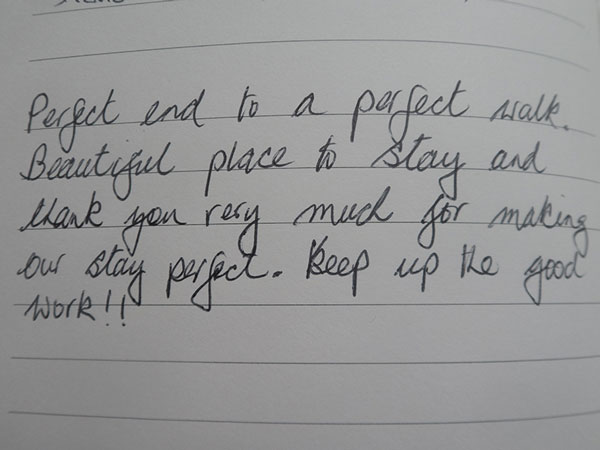 Perfect end to a perfect walk.
Beautiful place to stay and
thank you very much for making
our stay perfect. Keep up the good
work!!